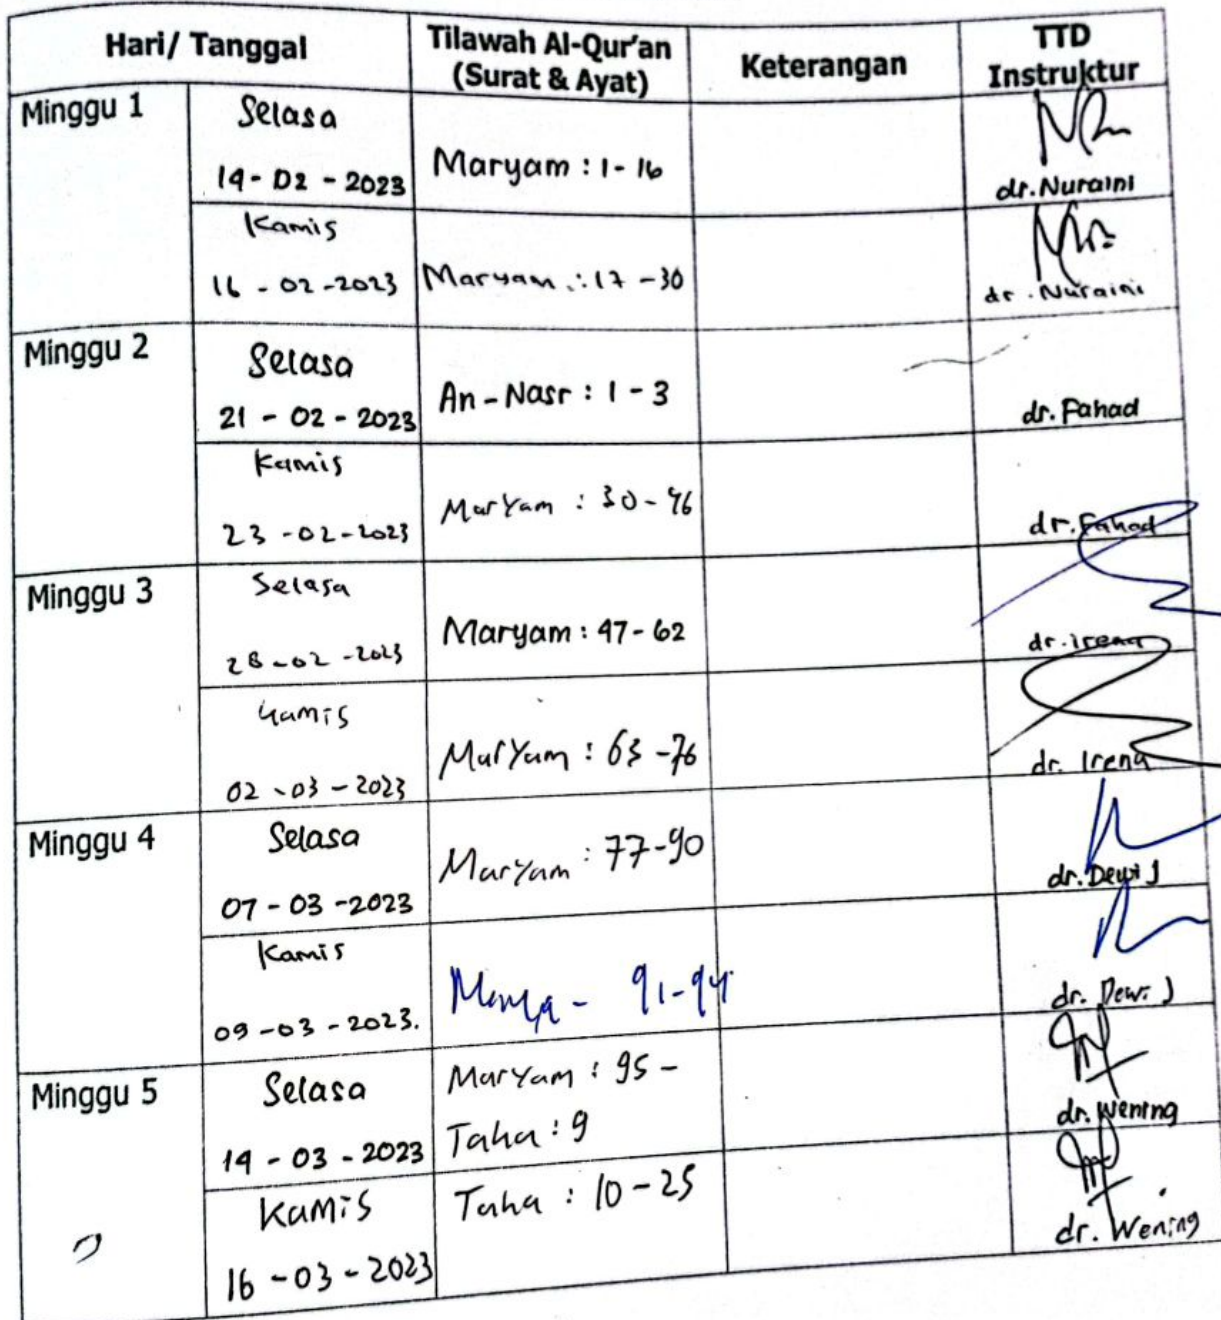 Hari/ Tanggal
Tilawah Al-Qur'an
(Surat & Ayat)
Keterangan
TTD
Instruktur
Minggu 1
Selasa
14 - 02 - 2023
Maryam : 1 - 16
dr. Nuraini
Kamis
16 - 02 - 2023
Maryam : 17 - 30
dr. Nuraini
Minggu 2
Selasa
21 - 02 - 2023
An - Nasr : 1 - 3
dr. Fahad
Kamis
23 - 02 - 2023
Maryam : 30 - 46
dr. Fahad
Minggu 3
Selasa
28 - 02 - 2023
Maryam : 47 - 62
dr. Irena
Kamis
02 - 03 - 2023
Maryam : 63 - 76
dr. Irena
Minggu 4
Selasa
07 - 03 - 2023
Maryam : 77 - 90
dr. Dewi J
Kamis
09 - 03 - 2023.
91 - 94
dr. Dewi J
Minggu 5
Selasa
14 - 03 - 2023
Maryam : 95 -
Taha : 9
dr. Wening
Kamis
16 - 03 - 2023
Taha : 10 - 25
dr. Wening